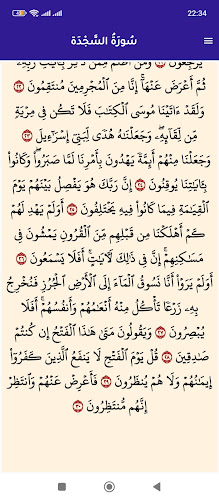 22:34
سُورَةُ السَّجْدَة
يَرْجِعُونَ ۝٢١ وَمَنْ أَظْلَمُ مِمَّن ذُكِّرَ بِـَٔايَٰتِ رَبِّهِۦ
ثُمَّ أَعْرَضَ عَنْهَآ ۚ إِنَّا مِنَ ٱلْمُجْرِمِينَ مُنتَقِمُونَ ۝٢٢
وَلَقَدْ ءَاتَيْنَا مُوسَى ٱلْكِتَٰبَ فَلَا تَكُن فِى مِرْيَةٍ
مِّن لِّقَآئِهِۦ ۖ وَجَعَلْنَٰهُ هُدًى لِّبَنِىٓ إِسْرَٰٓءِيلَ ۝٢٣
وَجَعَلْنَا مِنْهُمْ أَئِمَّةً يَهْدُونَ بِأَمْرِنَا لَمَّا صَبَرُوا۟ ۖ وَكَانُوا۟
بِـَٔايَٰتِنَا يُوقِنُونَ ۝٢٤ إِنَّ رَبَّكَ هُوَ يَفْصِلُ بَيْنَهُمْ يَوْمَ
ٱلْقِيَٰمَةِ فِيمَا كَانُوا۟ فِيهِ يَخْتَلِفُونَ ۝٢٥ أَوَلَمْ يَهْدِ لَهُمْ
كَمْ أَهْلَكْنَا مِن قَبْلِهِم مِّنَ ٱلْقُرُونِ يَمْشُونَ فِى
مَسَٰكِنِهِمْ ۚ إِنَّ فِى ذَٰلِكَ لَـَٔايَٰتٍ ۖ أَفَلَا يَسْمَعُونَ ۝٢٦
أَوَلَمْ يَرَوْا۟ أَنَّا نَسُوقُ ٱلْمَآءَ إِلَى ٱلْأَرْضِ ٱلْجُرُزِ فَنُخْرِجُ
بِهِۦ زَرْعًا تَأْكُلُ مِنْهُ أَنْعَٰمُهُمْ وَأَنفُسُهُمْ ۖ أَفَلَا
يُبْصِرُونَ ۝٢٧ وَيَقُولُونَ مَتَىٰ هَٰذَا ٱلْفَتْحُ إِن كُنتُمْ
صَٰدِقِينَ ۝٢٨ قُلْ يَوْمَ ٱلْفَتْحِ لَا يَنفَعُ ٱلَّذِينَ كَفَرُوٓا۟
إِيمَٰنُهُمْ وَلَا هُمْ يُنظَرُونَ ۝٢٩ فَأَعْرِضْ عَنْهُمْ وَٱنتَظِرْ
إِنَّهُم مُّنتَظِرُونَ ۝٣٠